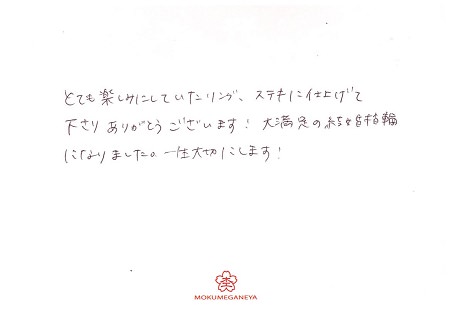 とても楽しみにしていたリング、ステキに仕上げて
下さりありがとうございます！大満足の結婚指輪
になりました。一生大切にします！
MOKUMEGANEYA